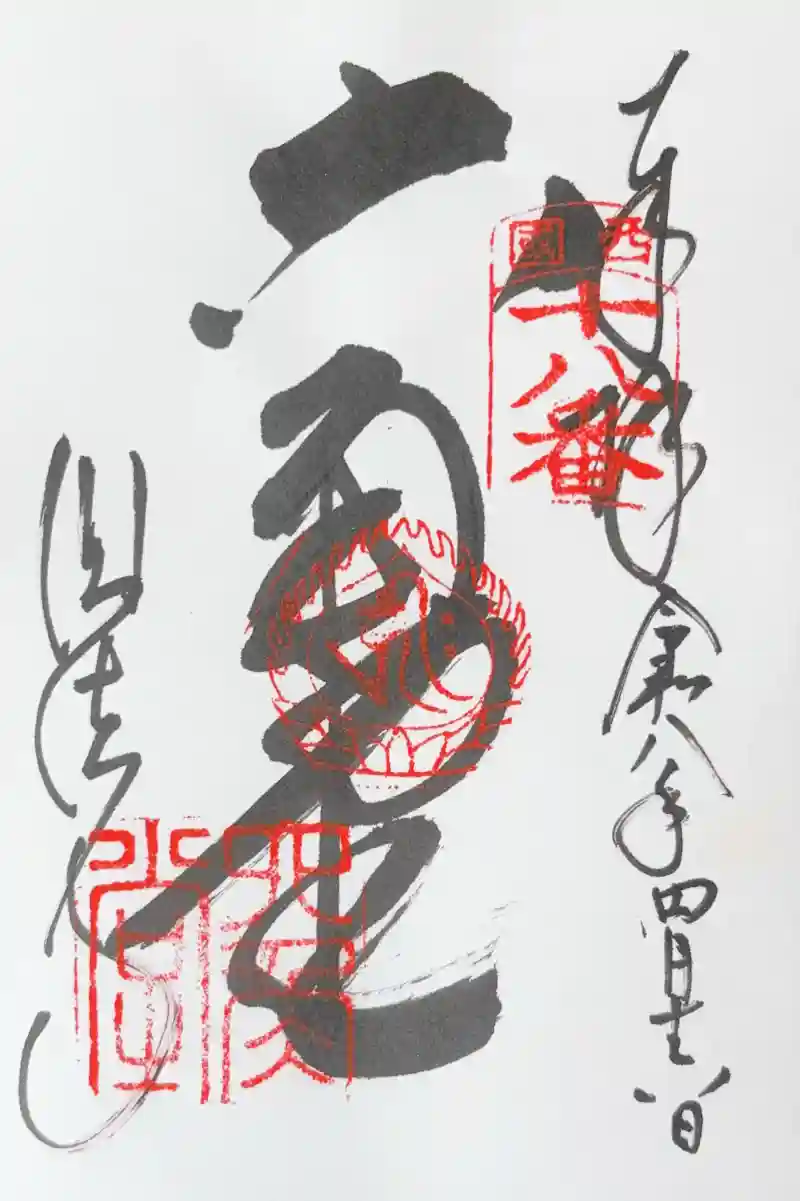 奉拝
令和八年四月
日
西國
十八番
六角堂
頂法寺
六角堂